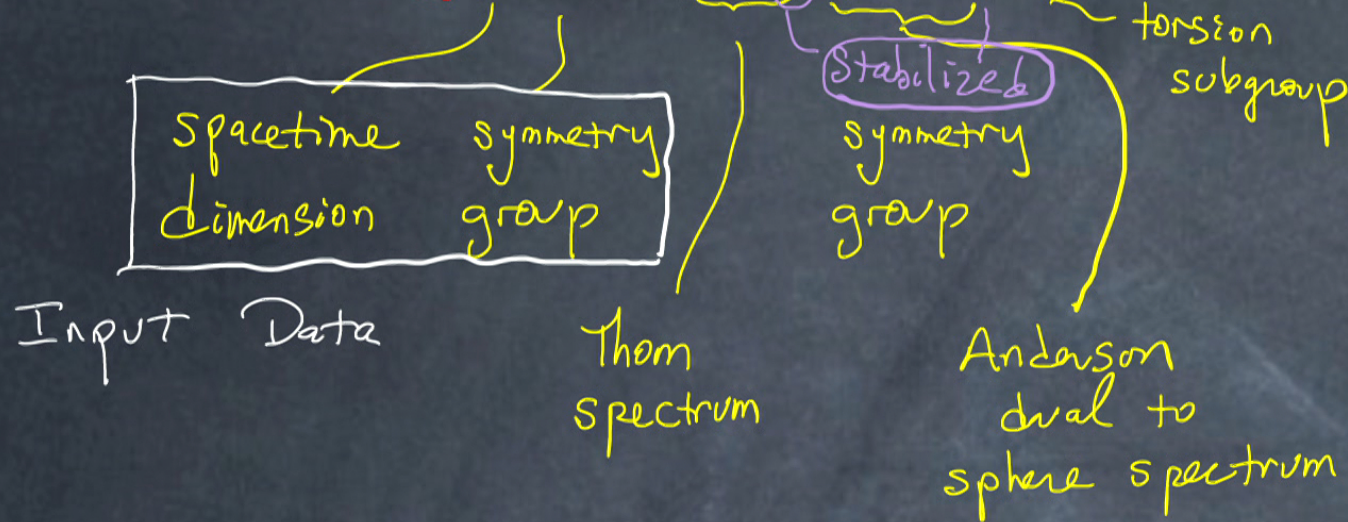 torsion
subgroup
Stabilized
spacetime symmetry symmetry
dimension group group
Input Data
Thom
spectrum
Anderson
dual to
sphere spectrum